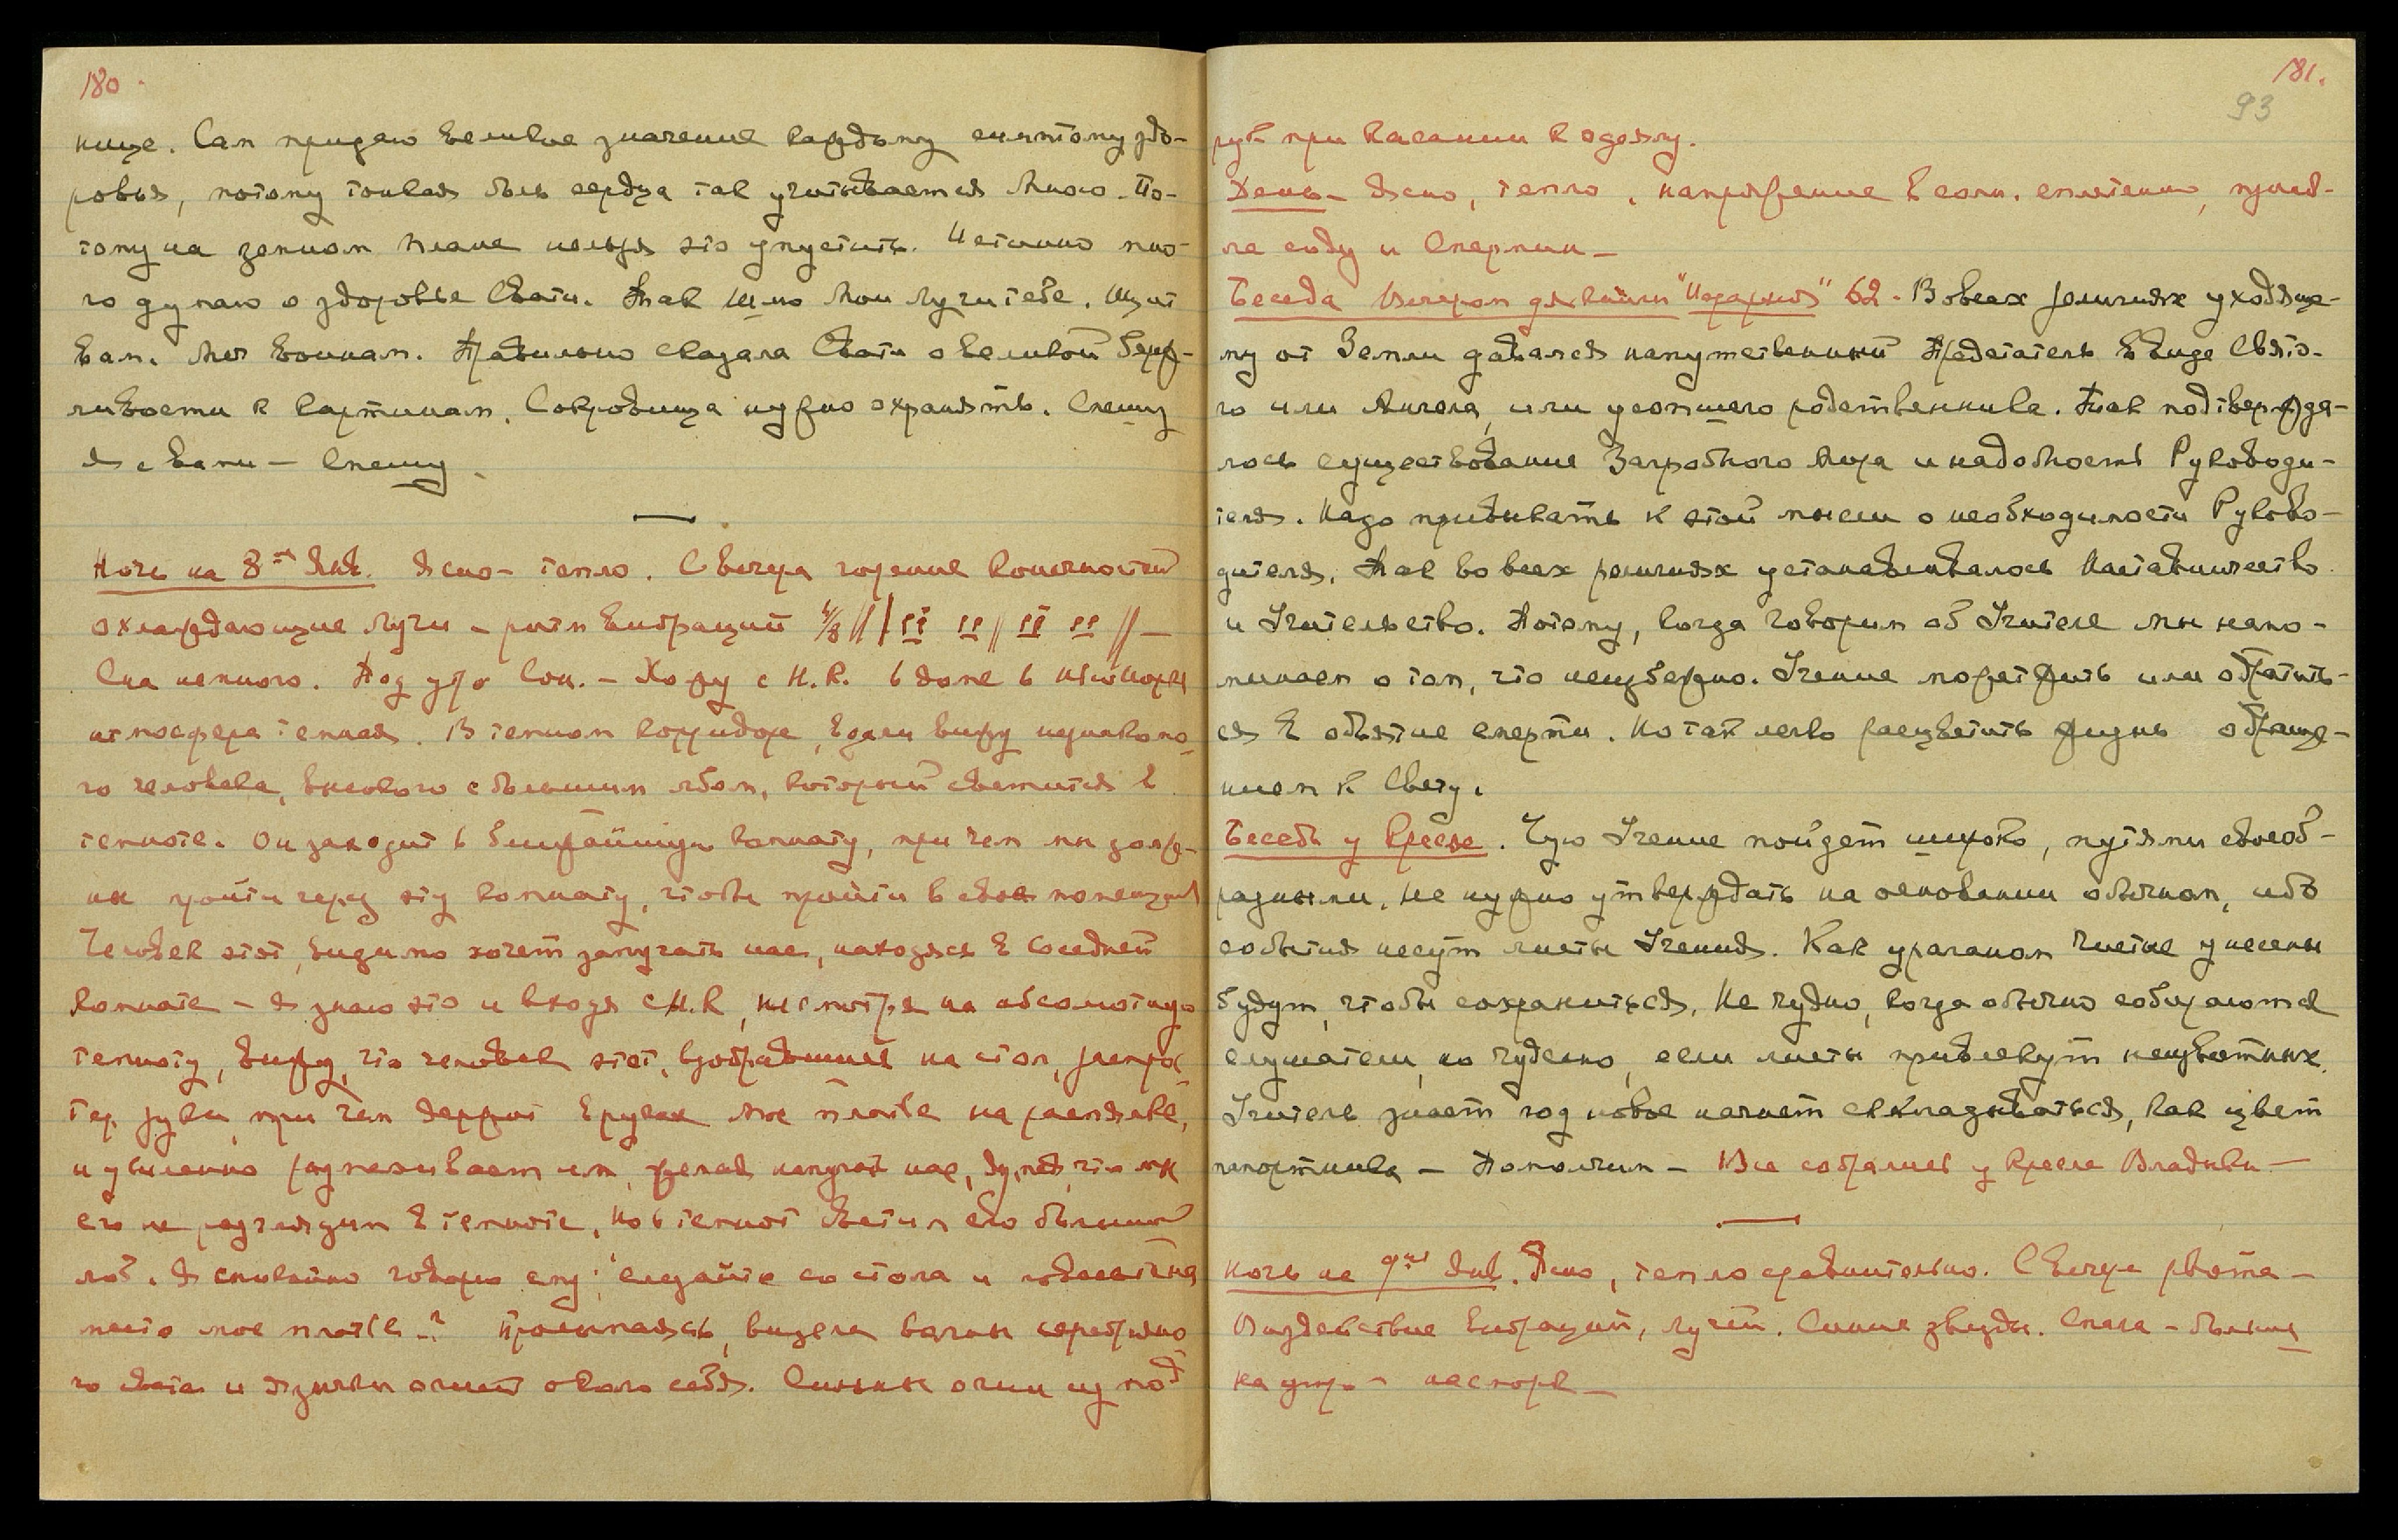 180.
нице. Сам придаю великое значение каждому симптому здо-
ровья, потому тонкая боль сердца так учитывается Мною. По-
тому на земном плане нельзя это упустить. Истинно мно-
го думаю о здоровье Свати. Так шлю Мои Лучи тебе. Щит
вам. Меч воинам. Правильно сказала Свати о великой береж-
ливости к картинам. Сокровища нужно охранять. Спешу
Я с вами – Спешу.
Ночь на 8ое Янв. Ясно – тепло. С вечера горение конечностей
охлаждающие Лучи – ритм вибраций 4/8
Сна немного. Под утро Сон. – Хожу с Н.К. в доме в
атмосфера темная. В темном коридоре, вдали вижу незнакомо-
го человека, высокого с большим лбом, который светится в
темноте. Он заходит в ближайшую комнату, при чем мы долж-
ны пройти через эту комнату, чтобы пройти в свое помещение
Человек этот, видимо хочет запугать нас, находясь в соседней
комнате – Я знаю это и входя с Н.К, несмотря на абсолютную
темноту, вижу, что человек этот, взобравшись на стол,
руки, при чем держит в руках мое платье на
и усиленно размахивает им, желая напугать нас, думая, что мы
его не разглядим в темноте, но в темноте светил его большой
лоб. Я спокойно говорю ему: "слезайте со стола и
место мое платье" Просыпаясь, видела волны серебряно-
го света и язычки огней около себя. Синие огни из под
181.
93
рук при касании к одеялу.
День – Ясно, тепло, напряжение в солн. сплетении, приня-
ла соду и Спермин –
Беседа Вечером "Иерархия" 62. Во всех религиях уходяще-
му от Земли давался напутственный Предстатель в виде Свято-
го или Ангела, или усопшего родственника. Так подтвержда-
лось существование Загробного Мира и надобность Руководи-
теля. Надо привыкать к этой мысли о необходимости Руково-
дителя. Так во всех религиях устанавливалось Наставничество
и Учительство. Потому, когда Говорим об Учителе Мы напо-
минаем о том, что неизбежно. Учение может жить или обратить-
ся в объятие смерти. Но так легко расцветить жизнь обраще-
нием к Свету.
Беседа у Кресла. Чую Учение пойдет широко, путями своеоб-
разными. Не нужно утверждать на основании обычном, ибо
события несут листы Учения. Как ураганом Листы унесены
будут, чтобы сохраниться. Не чудно, когда обычно собираются
слушатели, но чудесно, если листы привлекут неизвестных.
Учитель знает год новое начнет складываться, как цвет
папоротника – Помолчим – Все собрались у Кресла Владыки –
Ночь на 9ое Янв. Ясно, тепло сравнительно. С вечера рвота –
Воздействие вибраций, лучей. Синие звезды. Спала – больше
на утро – насморк –